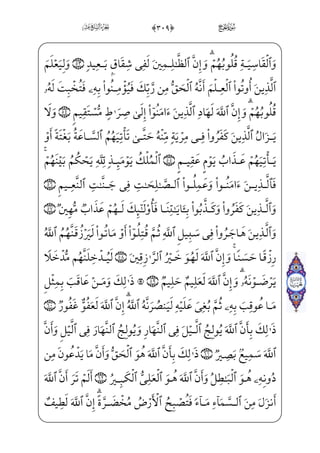 سورة الحج ﴿٣٠٩﴾ الجزء السابع عشر
وَٱلْقَاسِيَةِ قُلُوبُهُمْ ۗ وَإِنَّ ٱلظَّٰلِمِينَ لَفِى شِقَاقٍۭ بَعِيدٍ ۝ وَلِيَعْلَمَ
ٱلَّذِينَ أُوتُوا۟ ٱلْعِلْمَ أَنَّهُ ٱلْحَقُّ مِن رَّبِّكَ فَيُؤْمِنُوا۟ بِهِۦ فَتُخْبِتَ لَهُۥ
قُلُوبُهُمْ ۗ وَإِنَّ ٱللَّهَ لَهَادِ ٱلَّذِينَ ءَامَنُوٓا۟ إِلَىٰ صِرَٰطٍ مُّسْتَقِيمٍ ۝ وَلَا
يَزَالُ ٱلَّذِينَ كَفَرُوا۟ فِى مِرْيَةٍ مِّنْهُ حَتَّىٰ تَأْتِيَهُمُ ٱلسَّاعَةُ بَغْتَةً أَوْ
يَأْتِيَهُمْ عَذَابُ يَوْمٍ عَقِيمٍ ۝ ٱلْمُلْكُ يَوْمَئِذٍ لِّلَّهِ يَحْكُمُ بَيْنَهُمْ ۚ
فَٱلَّذِينَ ءَامَنُوا۟ وَعَمِلُوا۟ ٱلصَّٰلِحَٰتِ فِى جَنَّٰتِ ٱلنَّعِيمِ ۝
وَٱلَّذِينَ كَفَرُوا۟ وَكَذَّبُوا۟ بِـَٔايَٰتِنَا فَأُو۟لَٰٓئِكَ لَهُمْ عَذَابٌ مُّهِينٌ ۝
وَٱلَّذِينَ هَاجَرُوا۟ فِى سَبِيلِ ٱللَّهِ ثُمَّ قُتِلُوٓا۟ أَوْ مَاتُوا۟ لَيَرْزُقَنَّهُمُ ٱللَّهُ
رِزْقًا حَسَنًا ۚ وَإِنَّ ٱللَّهَ لَهُوَ خَيْرُ ٱلرَّٰزِقِينَ ۝ لَيُدْخِلَنَّهُم مُّدْخَلًا
يَرْضَوْنَهُۥ ۗ وَإِنَّ ٱللَّهَ لَعَلِيمٌ حَلِيمٌ ۝ ۞ ذَٰلِكَ وَمَنْ عَاقَبَ بِمِثْلِ
مَا عُوقِبَ بِهِۦ ثُمَّ بُغِىَ عَلَيْهِ لَيَنصُرَنَّهُ ٱللَّهُ ۗ إِنَّ ٱللَّهَ لَعَفُوٌّ غَفُورٌ ۝
ذَٰلِكَ بِأَنَّ ٱللَّهَ يُولِجُ ٱلَّيْلَ فِى ٱلنَّهَارِ وَيُولِجُ ٱلنَّهَارَ فِى ٱلَّيْلِ وَأَنَّ
ٱللَّهَ سَمِيعٌۢ بَصِيرٌ ۝ ذَٰلِكَ بِأَنَّ ٱللَّهَ هُوَ ٱلْحَقُّ وَأَنَّ مَا يَدْعُونَ مِن
دُونِهِۦ هُوَ ٱلْبَٰطِلُ وَأَنَّ ٱللَّهَ هُوَ ٱلْعَلِىُّ ٱلْكَبِيرُ ۝ أَلَمْ تَرَ أَنَّ ٱللَّهَ
أَنزَلَ مِنَ ٱلسَّمَآءِ مَآءً فَتُصْبِحُ ٱلْأَرْضُ مُخْضَرَّةً ۗ إِنَّ ٱللَّهَ لَطِيفٌ